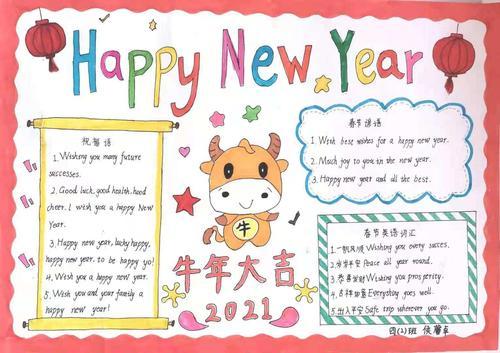 Happy New Year
祝福语
1. Wishing you many future
successes.
2. Good luck, good health, hood
cheer. I wish you a happy New
Year.
3. Happy new year, lucky happy,
happy new year, to be happy go!
4. Wish you a happy new year.
5. Wish you and your family a
happy new year!
春节谚语
1. Wish best wishes for a happy new year.
2. Much joy to you in the new year.
3. Happy new year and all the best.
牛
牛年大吉
2021
春节英语词汇
1. 一帆风顺 Wishing you every succes.
2. 岁岁平安 Peace all year round.
3. 恭喜发财 Wishing you prosperity.
4. 吉祥如意 Everything goes well.
5. 出入平安 Safe trip wherever you go.
四(2)班 侯馨卓